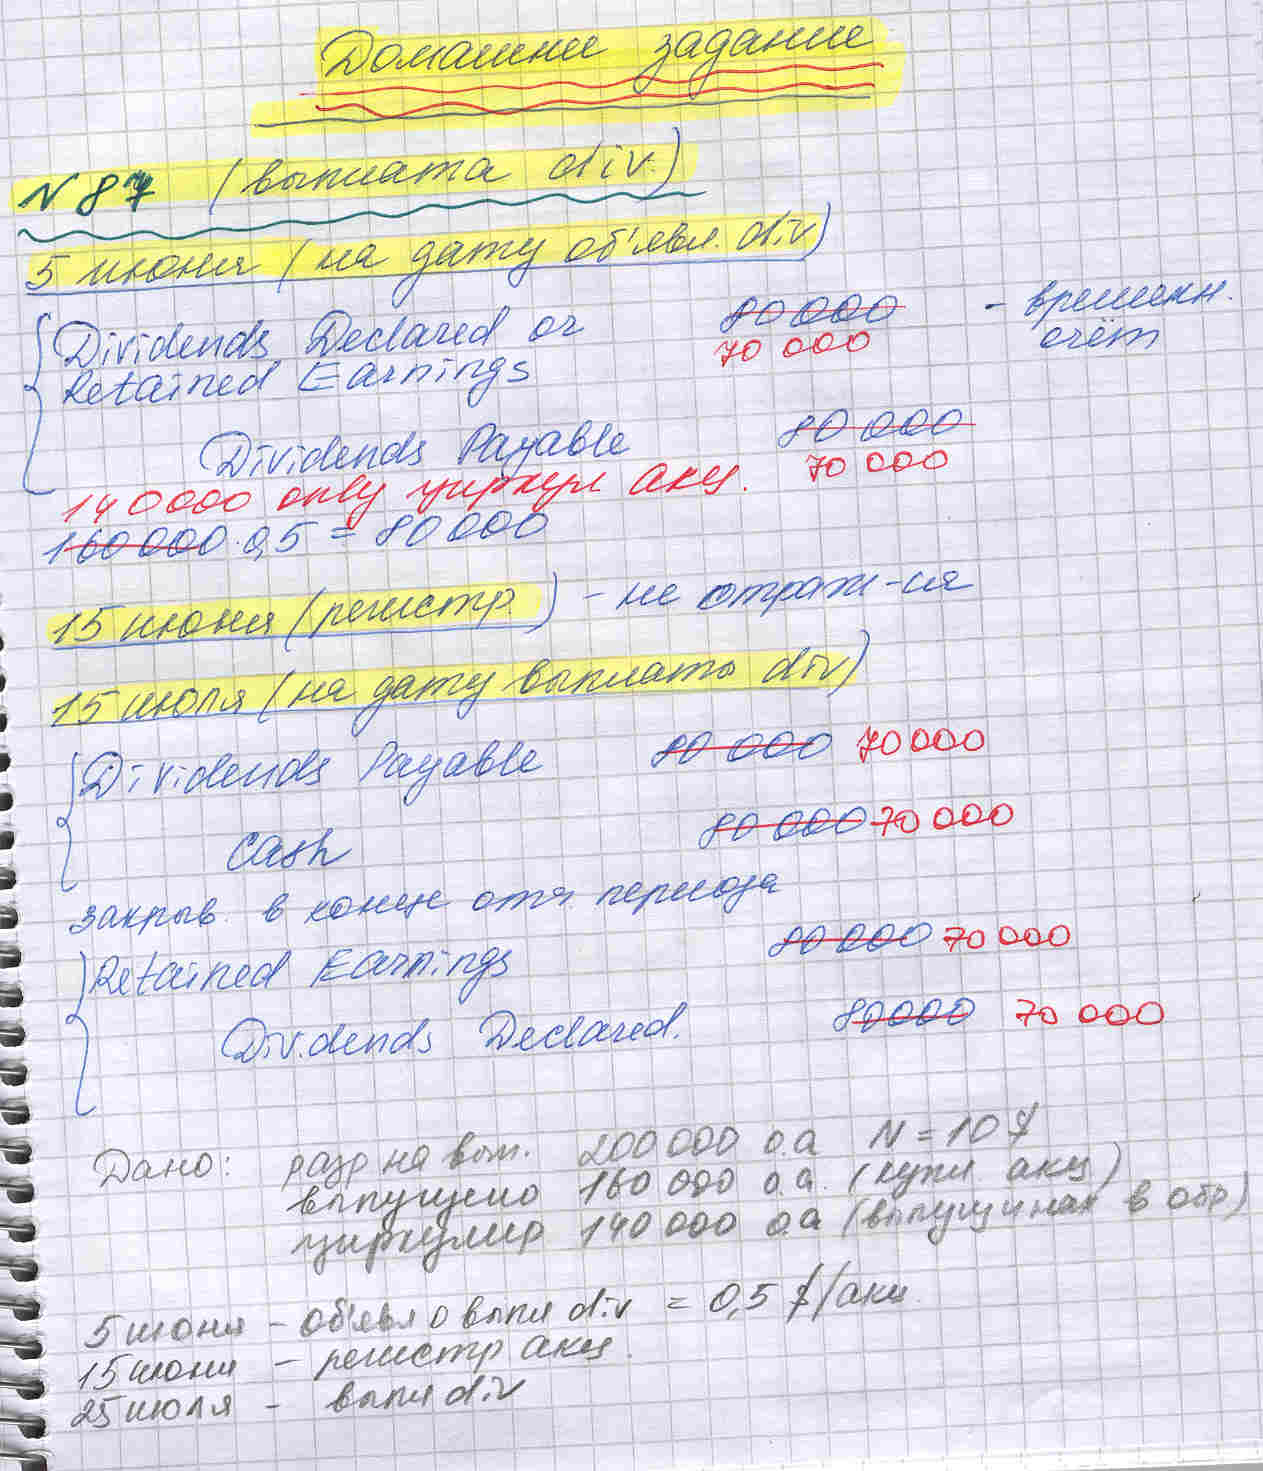 Домашнее задание
N 87 (выплата div.)
5 июня (на дату об'явл. div)
Dividends Declared or 80 000 - временн.
70 000 счёт
Retained Earnings
Dividends Payable 80 000
70 000
140000 only циркул акц.
160 000 · 0,5 = 80 000
15 июня (регистр.) - не отраж-ся
15 июля (на дату выплаты div)
Dividends Payable 80 000 70 000
Cash 80 000 70 000
закрыв. в конце отч. периода
Retained Earnings 80 000 70 000
Dividends Declared. 80000 70 000
Дано: разр на вып. 200 000 о.а N = 10 $
выпущено 160 000 о.а. (купл. акц)
циркулир 140 000 о.а (выпущиных в обр)
5 июня - об'явл о выпл div = 0,5 $/акц.
15 июня - регистр акц.
25 июля - выпл div